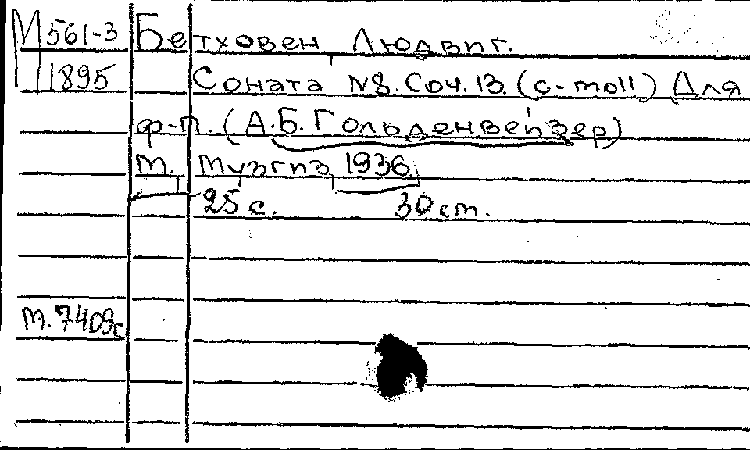 М 561-3
1895
Бетховен Людвиг.
Соната N8. Соч. 13 (c-moll) Для
ф-п. (А.Б. Гольденвейзер)
М., Музгиз, 1936.
25 с. 30 см.
м. 7409с